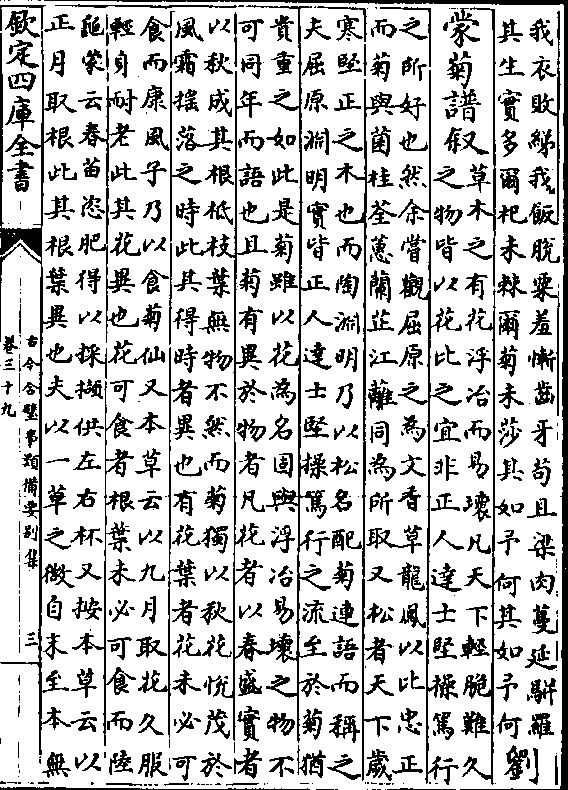 我衣敗綈我飯脫粟羞慚齒牙苟且梁肉蔓延駢羅
其生實多爾杞未棘爾菊未莎其如予何其如予何
劉
蒙菊譜叙
草木之有花浮冶而易壞凡天下輕脆難久
之物皆以花比之宜非正人達士堅操篤行
之所好也然余嘗觀屈原之為文香草龍鳳以比忠正
而菊與菌桂荃蕙蘭芷江蘺同為所取又松者天下歲
寒堅正之木也而陶淵明乃以松名配菊連語而稱之
夫屈原淵明實皆正人達士堅操篤行之流至於菊猶
貴重之如此是菊雖以花為名固與浮冶易壞之物不
可同年而語也且菊有異於物者凡花者以春盛實者
以秋成其根柢枝葉無物不然而菊獨以秋花悅茂於
風霜摇落之時此其得時者異也有花葉者花未必可
食而康風子乃以食菊仙又本草云以九月取花久服
輕身耐老此其花異也花可食者根葉未必可食而陸
龜蒙云春苗恣肥得以採擷供左右杯又按本草云以
正月取根此其根葉異也夫以一草之微自末至本無
欽定四庫全書
古今合璧事類備要別集
卷三十九
三